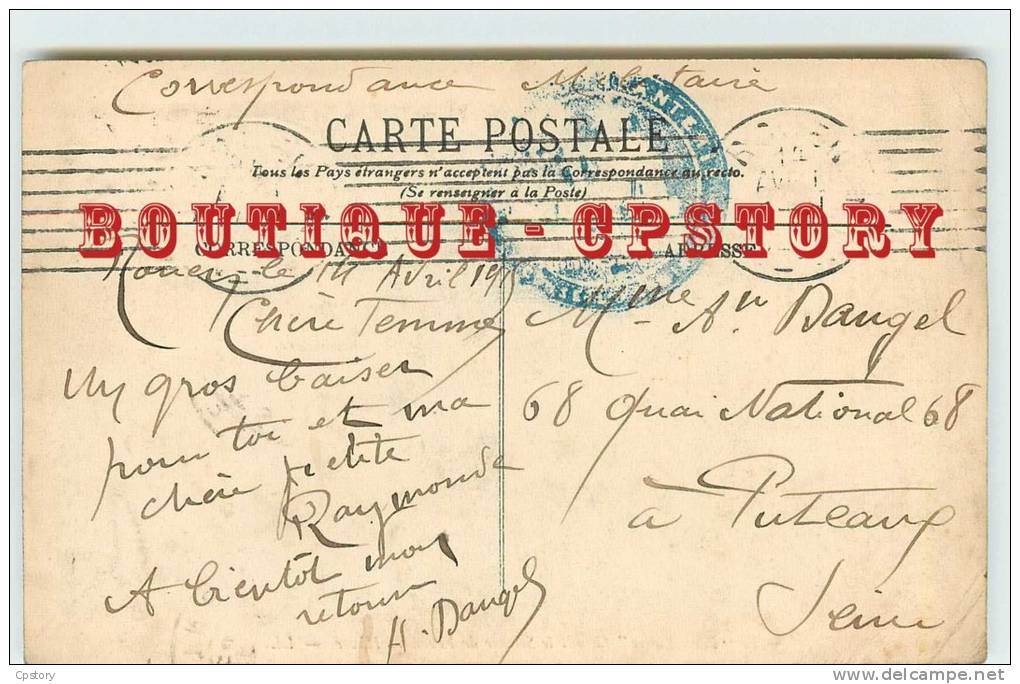 Correspondance Militaire
CARTE POSTALE
Tous les Pays étrangers n'acceptent pas la Correspondance au recto.
(Se renseigner à la Poste)
BOUTIQUE - CPSTORY
CORRESPONDANCE
ADRESSE
Rouen le 14 Avril 191
Chère Femme
Un gros baiser
pour toi et ma
chère petite
Raymonde
A bientôt mon
retour
A. Dangel
Mme Dangel
68 Quai National 68
à Puteaux
Seine
Cpstory
www.delcampe.net